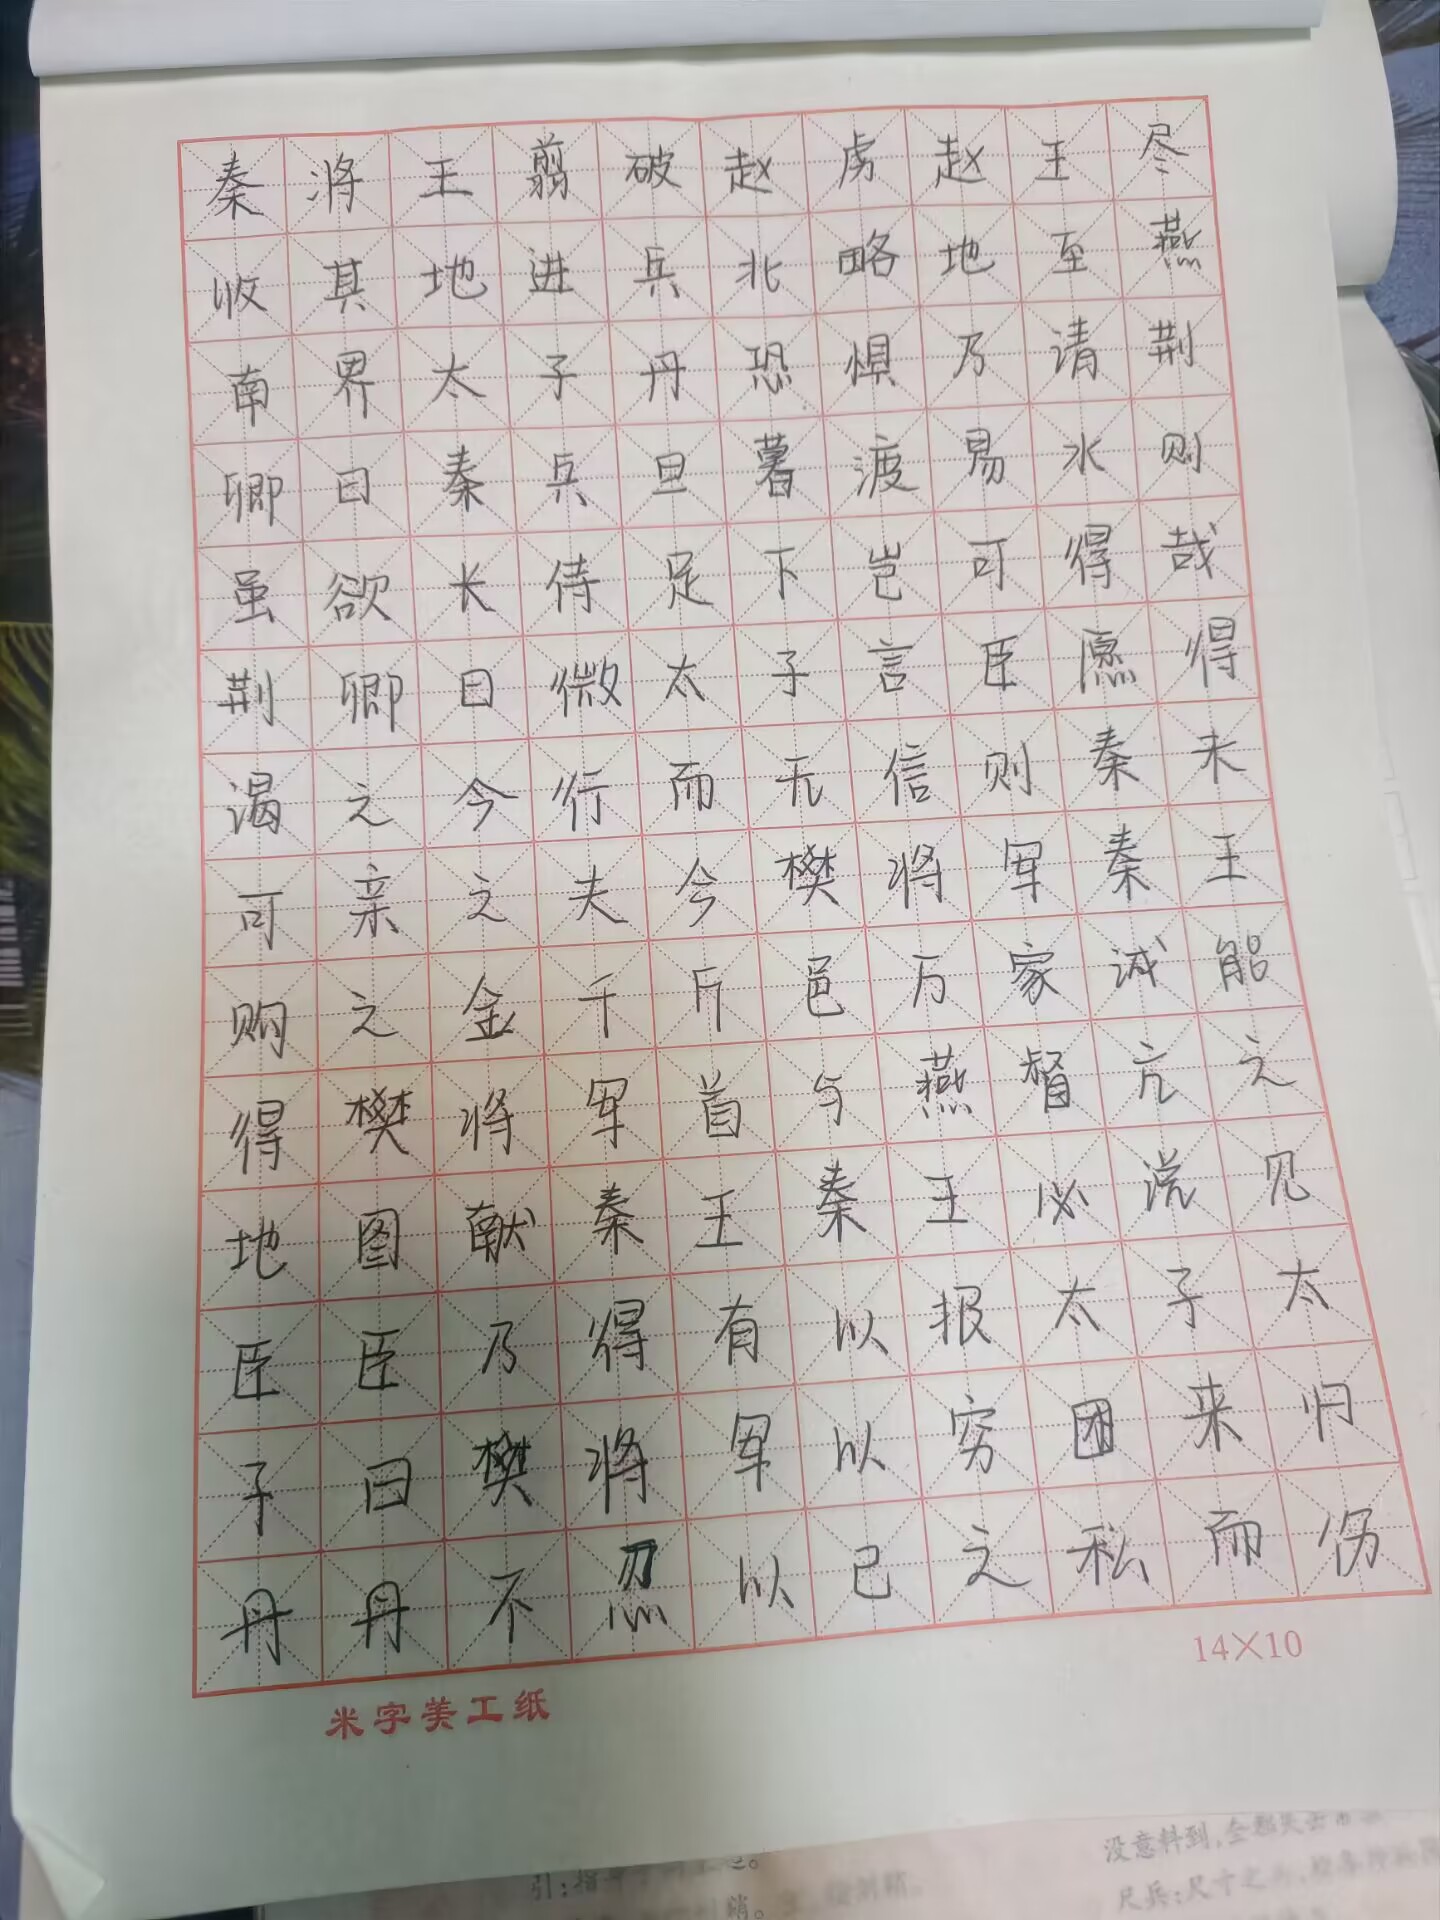 秦将王翦破赵虏赵王尽
收其地进兵北略地至燕
南界太子丹恐惧乃请荆
卿曰秦兵旦暮渡易水则
虽欲长侍足下岂可得哉
荆卿曰微太子言臣愿得
谒之今行而无信则秦未
可亲之夫今樊将军秦王
购之金千斤邑万家诚能
得樊将军首与燕督亢之
地图献秦王秦王必说见
臣臣乃得有以报太子太
子曰樊将军以穷困来归
丹丹不忍以己之私而伤
14×10
米字美工纸
没意料到,全都失去常
引:指
尺兵:尺寸之